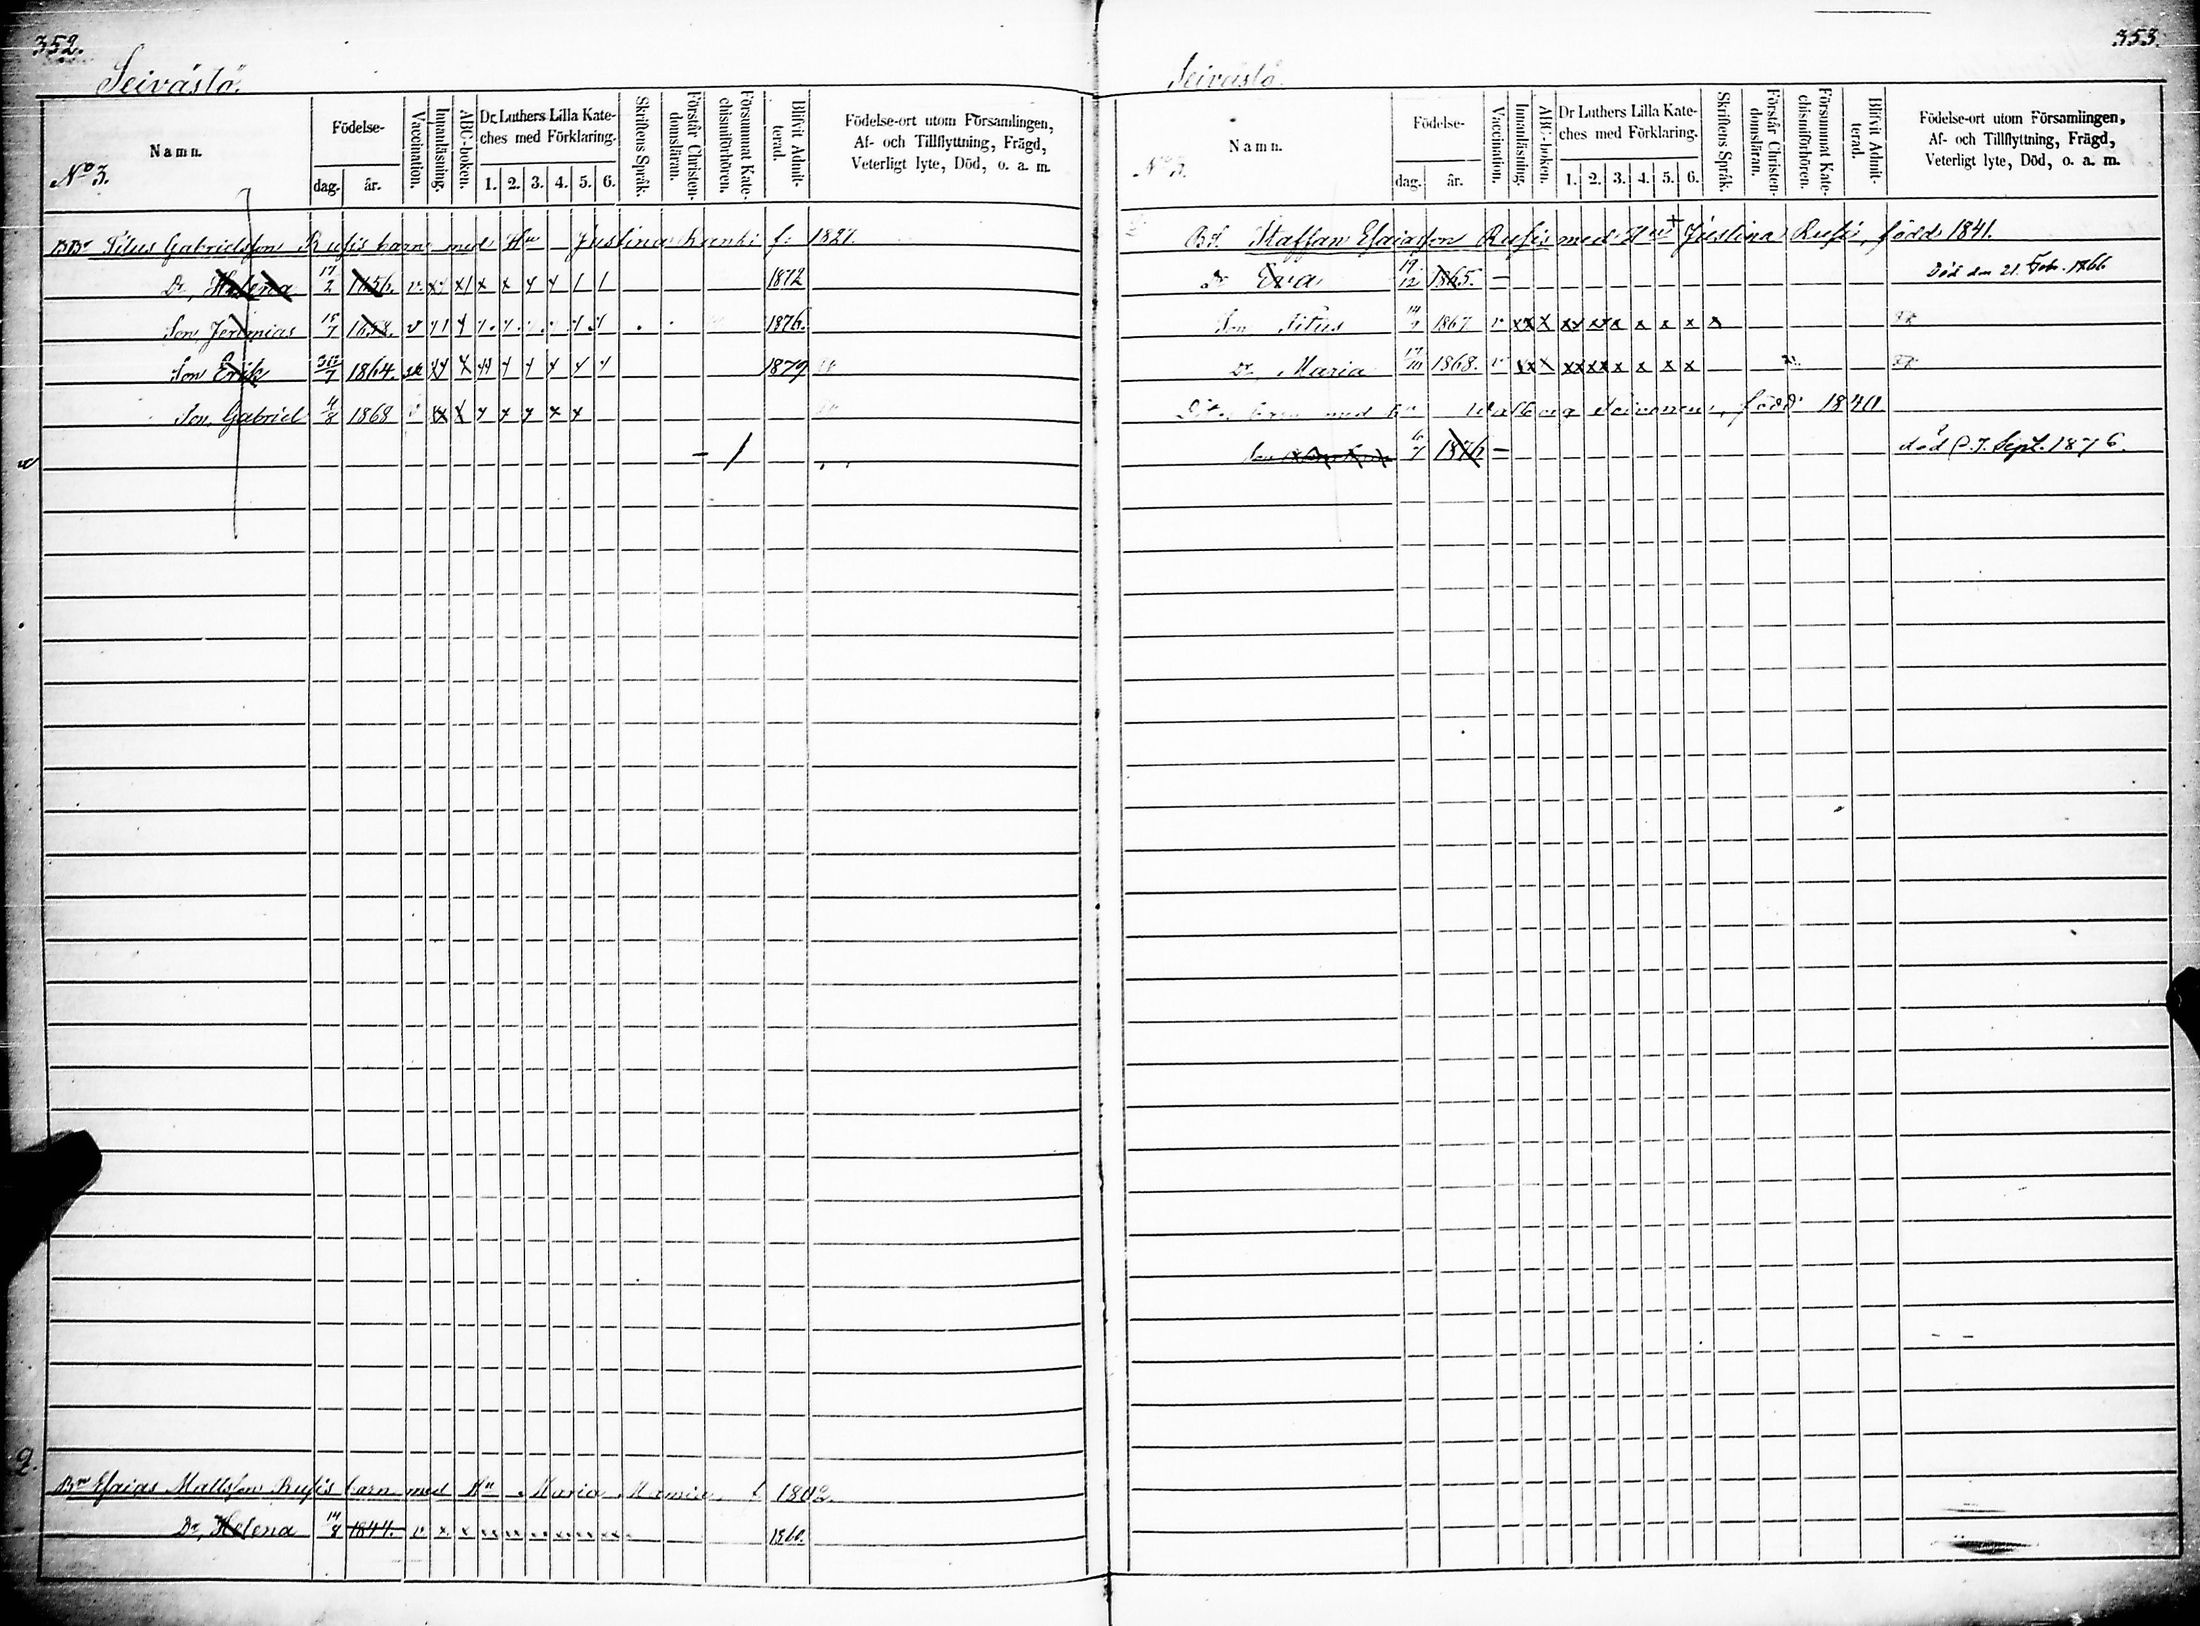 352.
Seivästö.
No 3.
Namn.
Födelse-
dag. år.
Vaccination.
Innanläsning.
ABC-boken.
Dr Luthers Lilla Kate-
ches med Förklaring.
1. 2. 3. 4. 5. 6.
Skriftens Språk.
Förstår Christen-
domsläran.
Försummat Kate-
chismiförhören.
Blifvit Admit-
terad.
Födelse-ort utom Församlingen,
Af- och Tillflyttning, Frägd,
Veterligt lyte, Död, o. a. m.
Titus Gabrielsson Rusis barn med Hu Justina f: 1827.
Dr, Helena 17/2 1856. v. x x 1 x x x x 1 1 1872
Son, Jeremias 15/7 1858. v 1876.
Son Erik 30/7 1864. 1879
Son, Gabriel 4/8 1868
Bn Esaias Mattsson Rusis barn med Hu Maria f. 1802.
Dr, Helena 14/8 1844. v x x 1860.
353.
Seivästö.
No 3.
Namn.
Födelse-
dag. år.
Vaccination.
Innanläsning.
ABC-boken.
Dr Luthers Lilla Kate-
ches med Förklaring.
1. 2. 3. 4. 5. 6.
Skriftens Språk.
Förstår Christen-
domsläran.
Försummat Kate-
chismiförhören.
Blifvit Admit-
terad.
Födelse-ort utom Församlingen,
Af- och Tillflyttning, Frägd,
Veterligt lyte, Död, o. a. m.
Staffan Esaiasson Rusis med Hu Justina Rusi, född 1841.
Dr Eva 19/12 1865. – Död den 21. Feb. 1866
Son Titus 1867 v xx x xx xx x x x x x
Dr, Maria 17/10 1868. v xx x xx xx x x x x
barn med hu Walborg född 1840
Son 6/7 1876 – död d. 7. Sept. 1876.